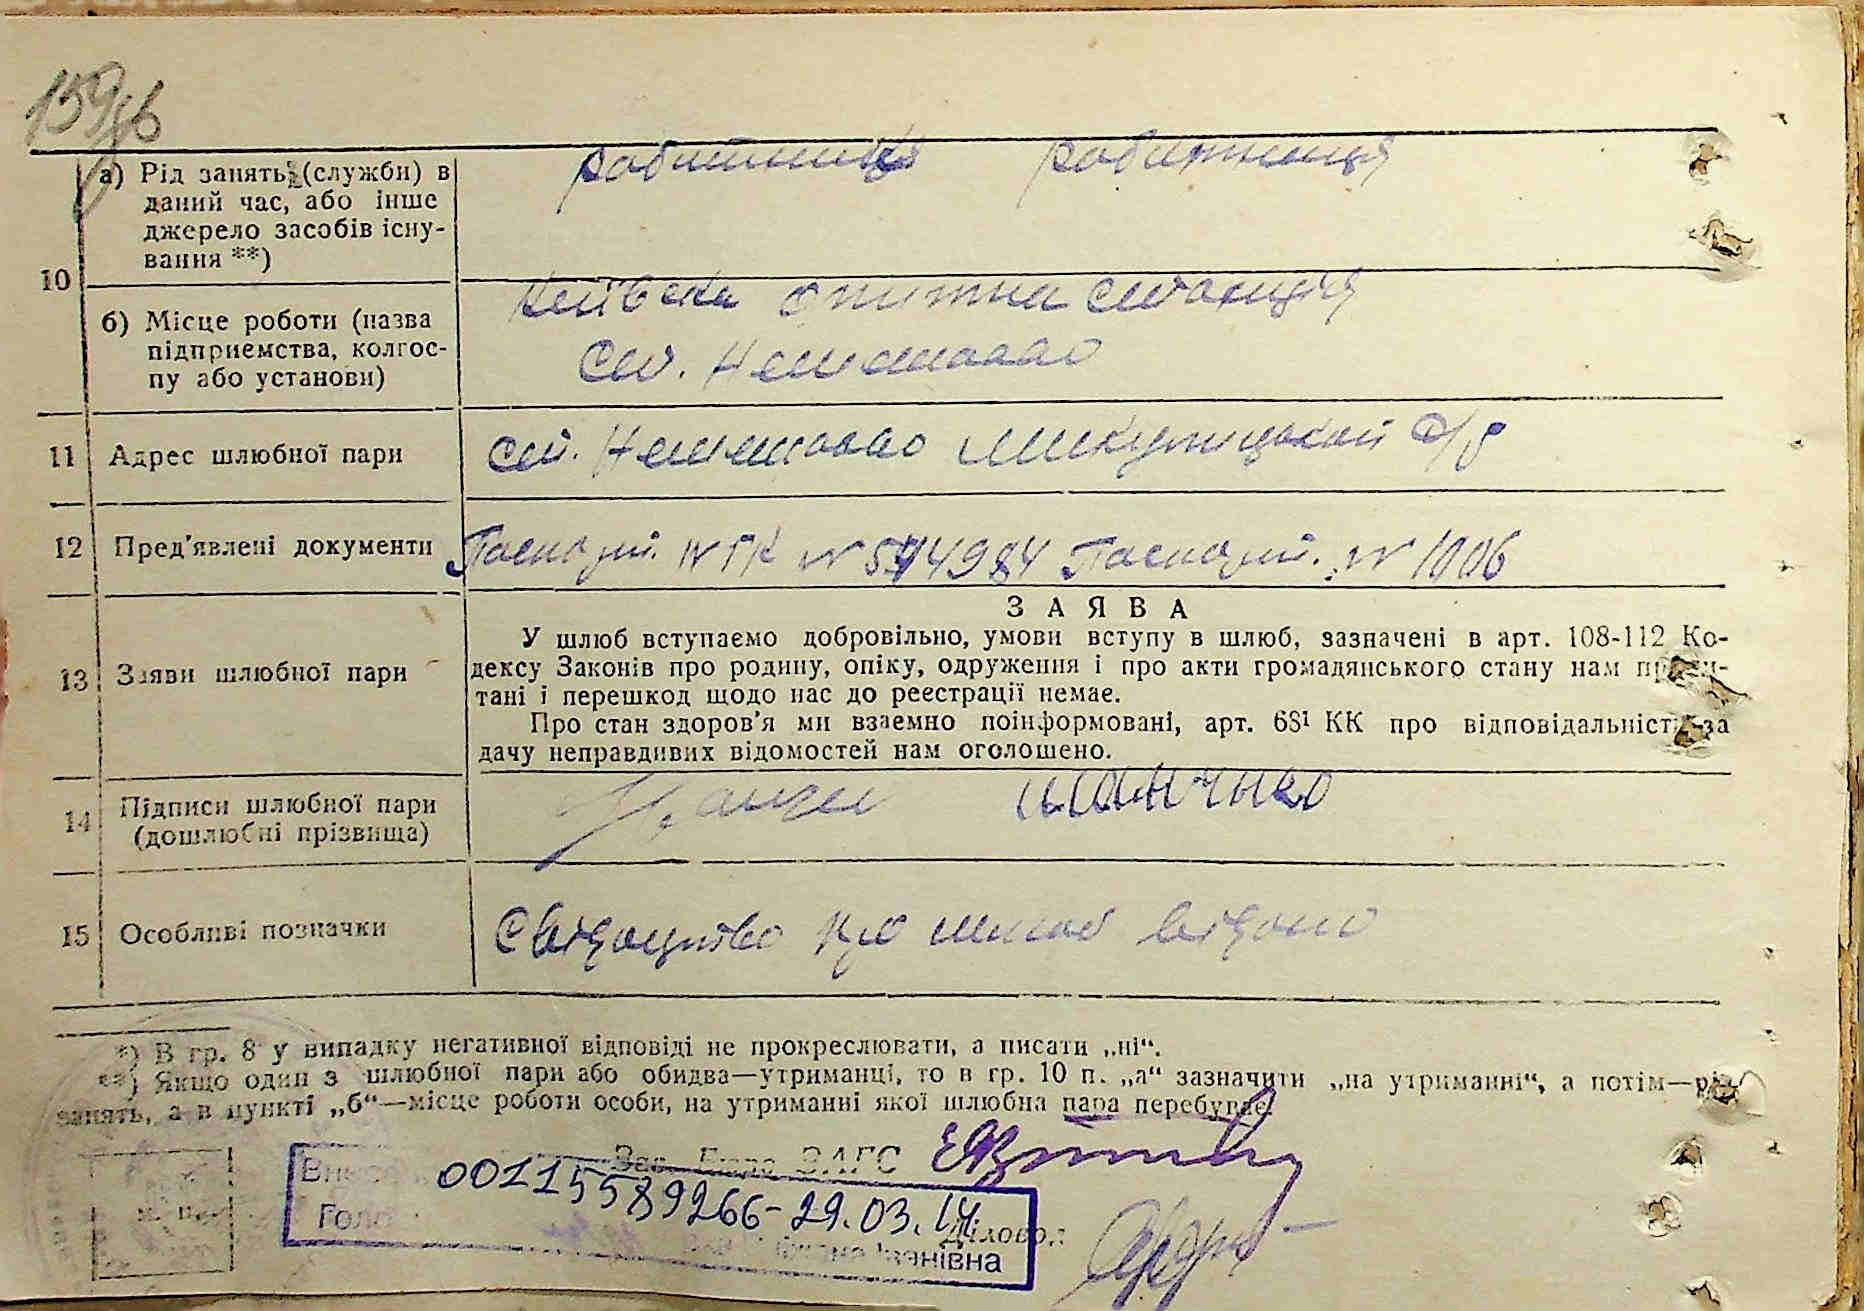 159зв
10 а) Рід занять (служби) в
даний час, або інше
джерело засобів існу-
вання **)
робітниця робітниця
б) Місце роботи (назва
підприємства, колгос-
пу або установи)
Київська опитна станція
ст. Немішаєво
11 Адрес шлюбної пари
ст. Немішаєво Микулицької с/р
12 Пред'явлені документи
Паспорт. № 594984 Паспорт. № 1006
13 Заяви шлюбної пари
ЗАЯВА
У шлюб вступаємо добровільно, умови вступу в шлюб, зазначені в арт. 108-112 Ко-
дексу Законів про родину, опіку, одруження і про акти громадянського стану нам прочи-
тані і перешкод щодо нас до реєстрації немає.
Про стан здоров'я ми взаємно поінформовані, арт. 68¹ КК про відповідальність за
дачу неправдивих відомостей нам оголошено.
14 Підписи шлюбної пари
(дошлюбні прізвища)
15 Особливі позначки
Свідоцтво про шлюб видано
*) В гр. 8 у випадку негативної відповіді не прокреслювати, а писати „ні“.
**) Якщо один з шлюбної пари або обидва—утриманці, то в гр. 10 п. „а“ зазначити „на утриманні“, а потім—рід
занять, а в пункті „б“—місце роботи особи, на утриманні якої шлюбна пара перебуває.
Зав. Бюро ЗАГС
00115589266-29.03.14
Діловод
Іванівна